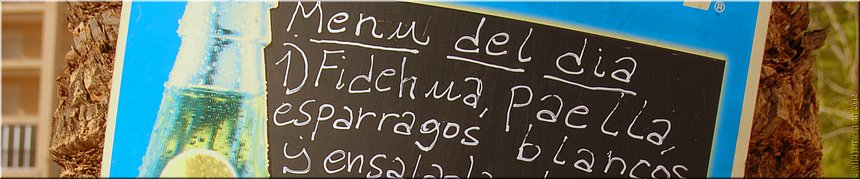 Menu del dia
1) Fidehuá, Paella,
esparragos blancos
y ensalada